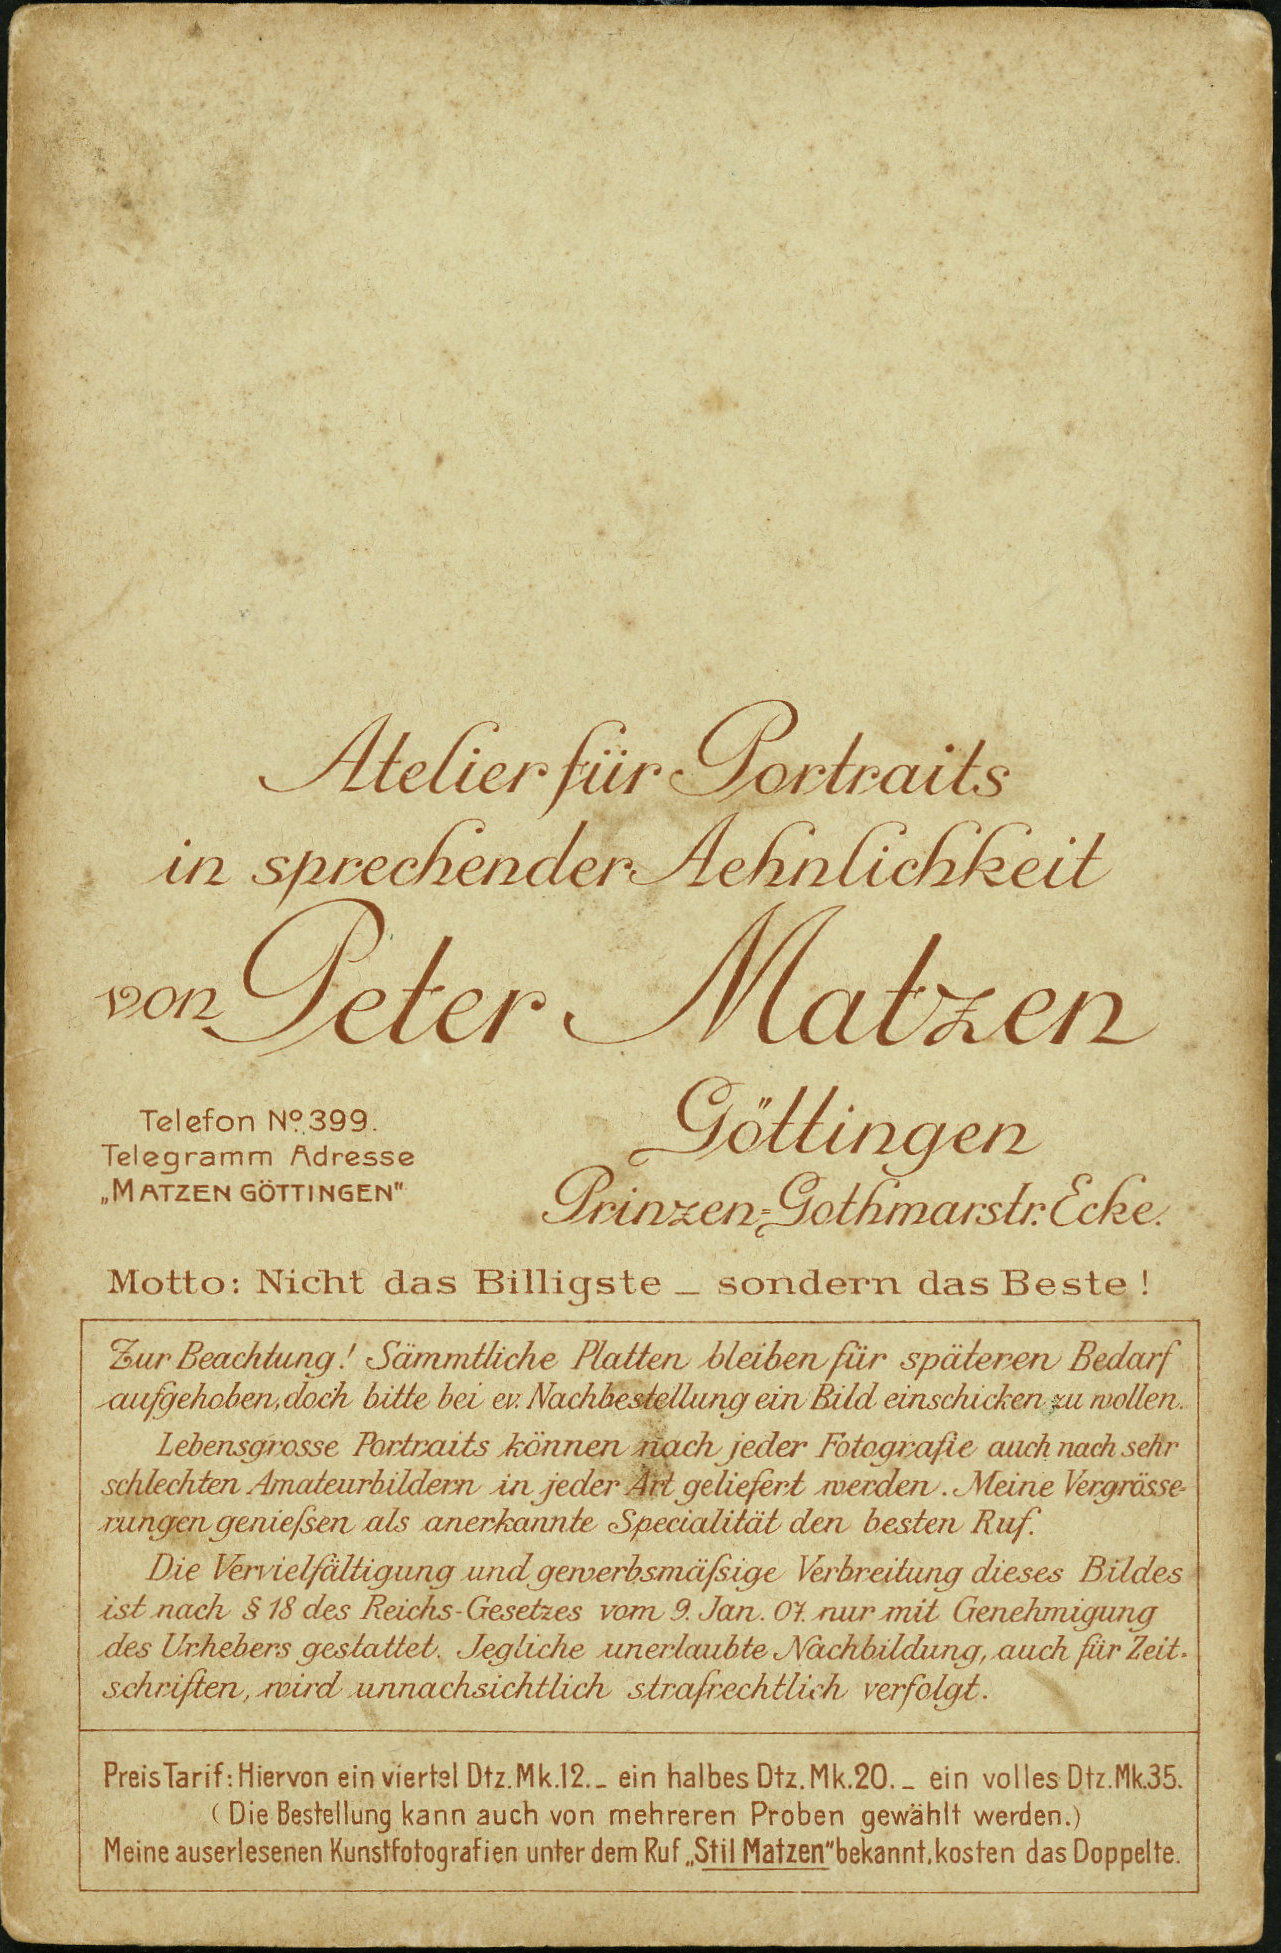 Atelier für Portraits
in sprechender Aehnlichkeit
von Peter Matzen
Göttingen
Prinzen-Gothmarstr. Ecke.
Telefon No. 399.
Telegramm Adresse
„MATZEN GÖTTINGEN"
Motto: Nicht das Billigste _ sondern das Beste !
Zur Beachtung! Sämmtliche Platten bleiben für späteren Bedarf
aufgehoben, doch bitte bei ev. Nachbestellung ein Bild einschicken zu wollen.
Lebensgrosse Portraits können nach jeder Fotografie auch nach sehr
schlechten Amateurbildern in jeder Art geliefert werden. Meine Vergrösse-
rungen genieſsen als anerkannte Specialität den besten Ruf.
Die Vervielfältigung und gewerbsmäſsige Verbreitung dieses Bildes
ist nach § 18 des Reichs-Gesetzes vom 9. Jan. 07. nur mit Genehmigung
des Urhebers gestattet. Jegliche unerlaubte Nachbildung, auch für Zeit-
schriften, wird unnachsichtlich strafrechtlich verfolgt.
Preis Tarif: Hiervon ein viertel Dtz. Mk. 12. _ ein halbes Dtz. Mk. 20. _ ein volles Dtz. Mk. 35.
(Die Bestellung kann auch von mehreren Proben gewählt werden.)
Meine auserlesenen Kunstfotografien unter dem Ruf „Stil Matzen" bekannt, kosten das Doppelte.